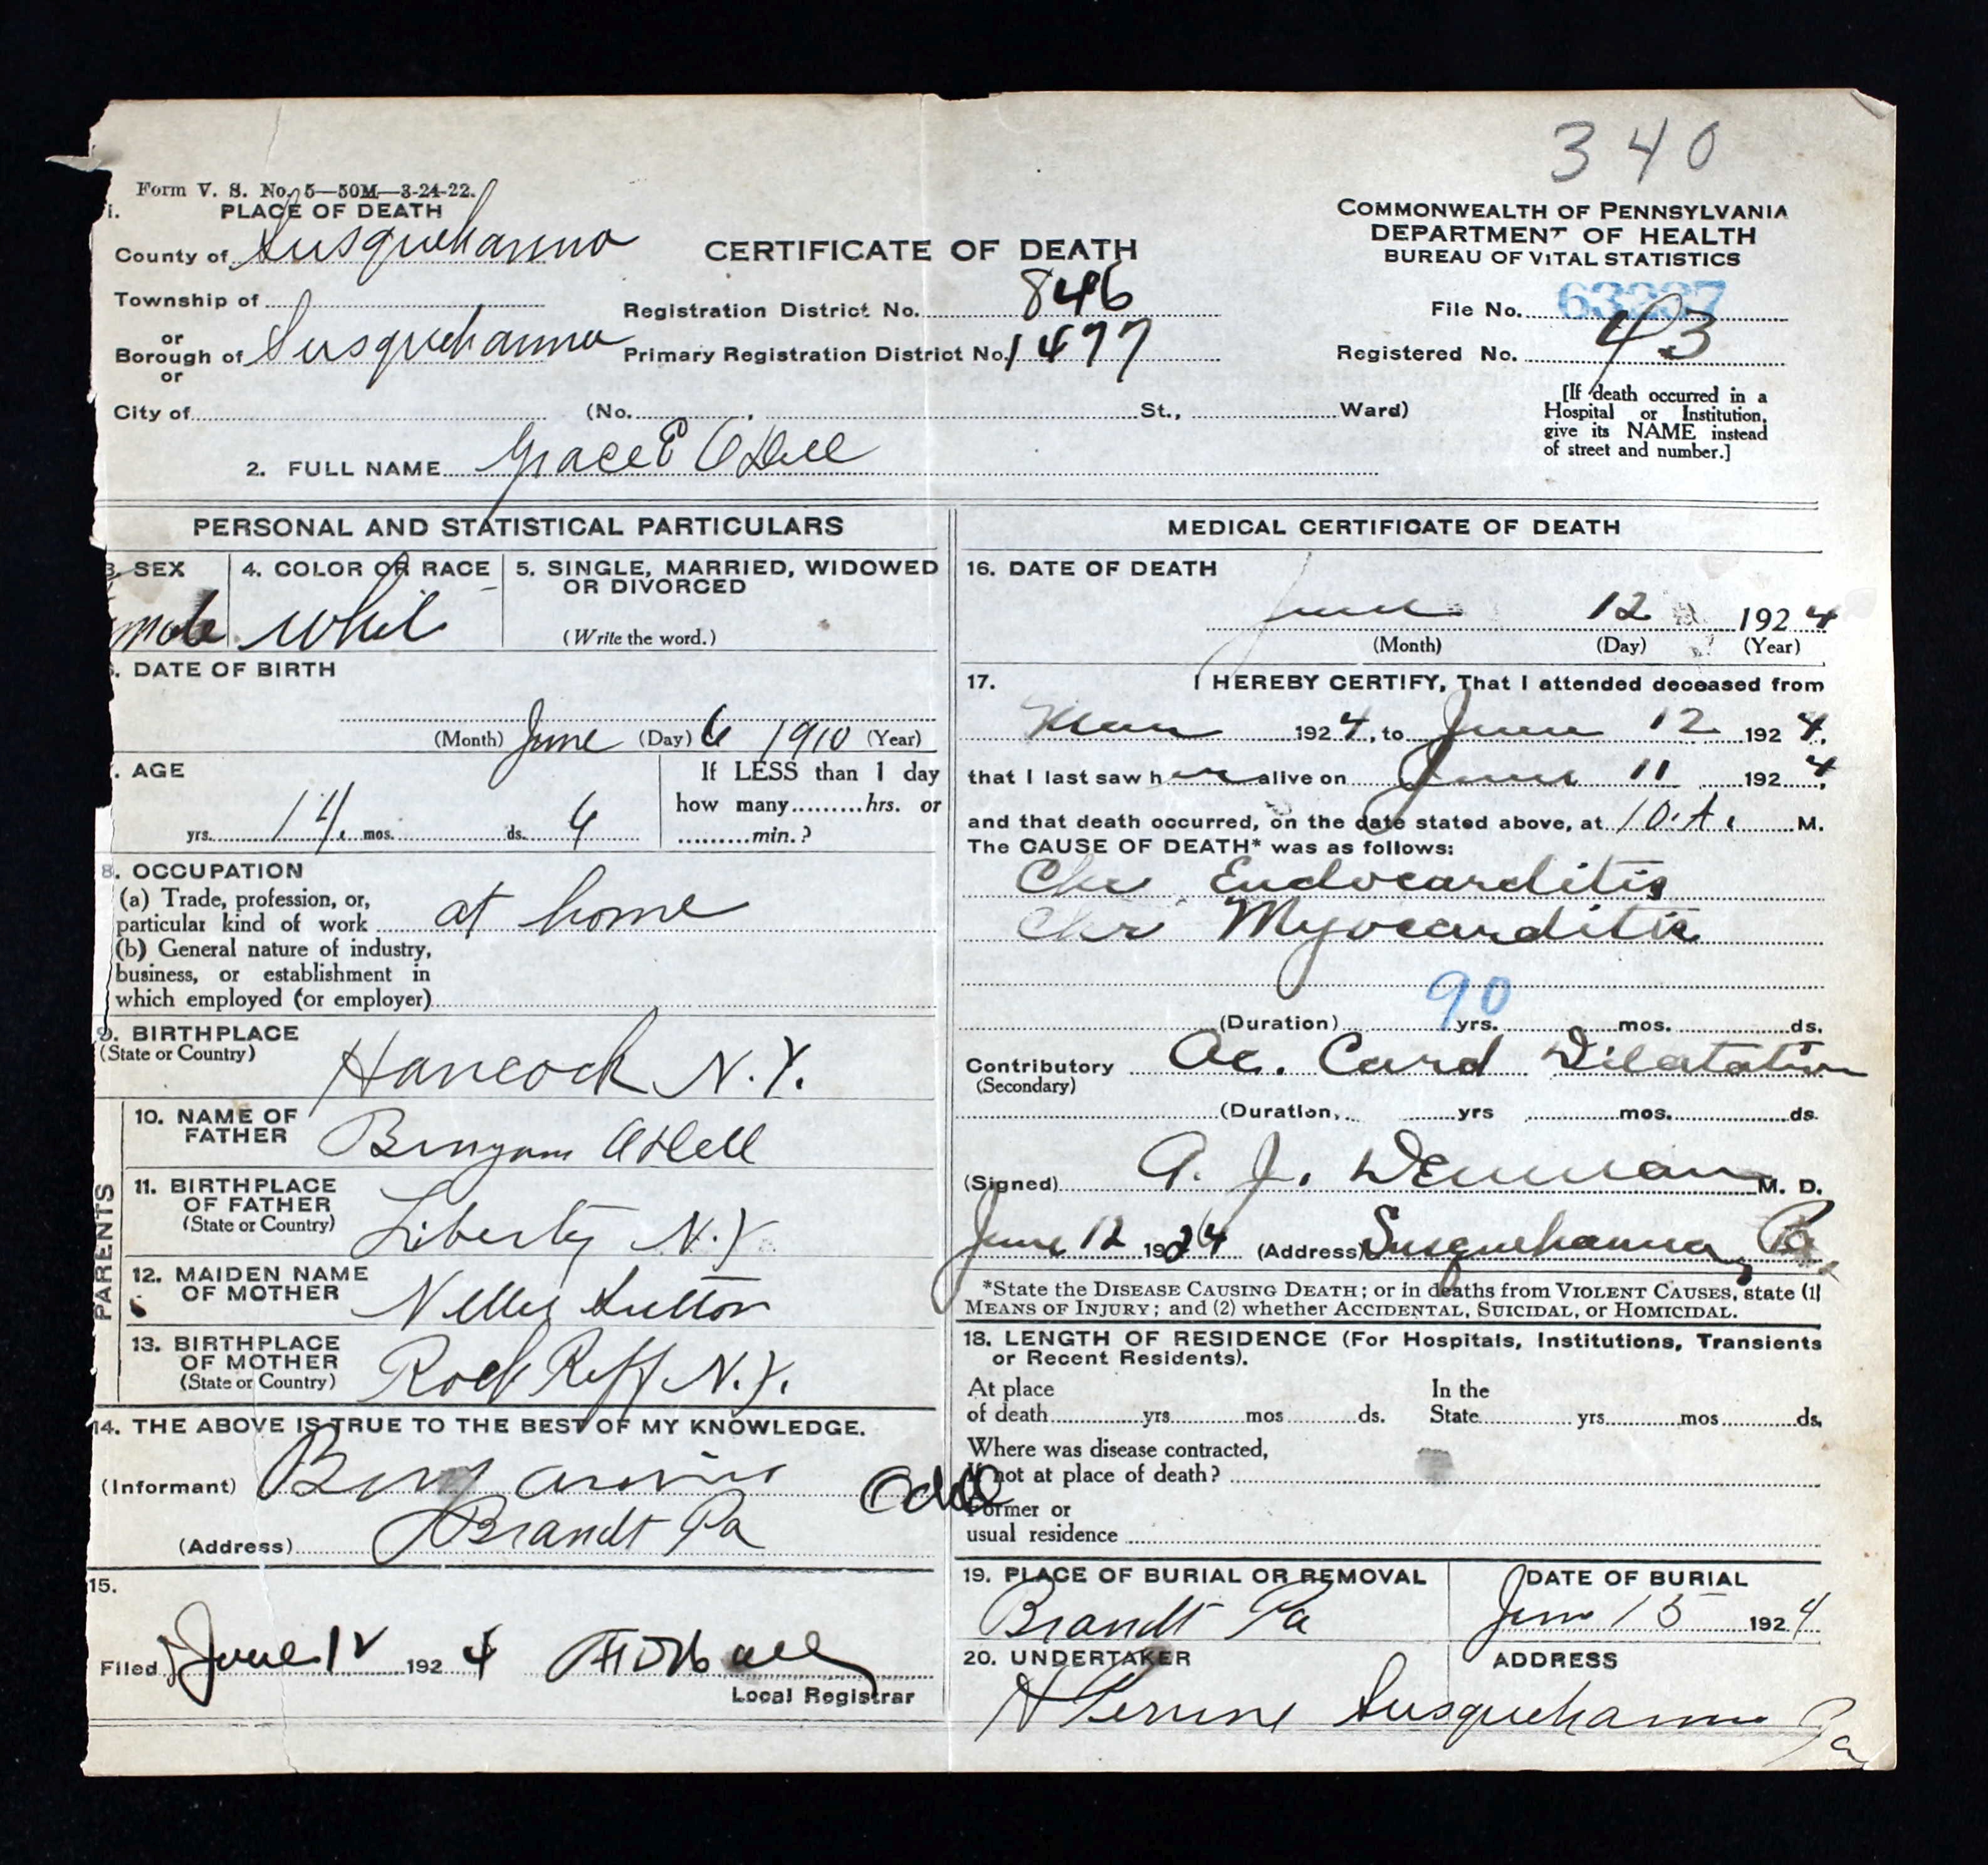 340
Form V. S. No. 5—50M—3-24-22.
1. PLACE OF DEATH
COMMONWEALTH OF PENNSYLVANIA
DEPARTMENT OF HEALTH
BUREAU OF VITAL STATISTICS
County of Susquehanna
CERTIFICATE OF DEATH
Township of
Registration District No. 846
File No.
or
Borough of Susquehanna
Primary Registration District No. 1477
Registered No. 43
or
City of (No. , St., Ward)
[If death occurred in a
Hospital or Institution,
give its NAME instead
of street and number.]
2. FULL NAME Grace E ODell
PERSONAL AND STATISTICAL PARTICULARS
3. SEX
4. COLOR OR RACE Whit
5. SINGLE, MARRIED, WIDOWED
OR DIVORCED
(Write the word.)
. DATE OF BIRTH
(Month) June (Day) 6 1910 (Year)
. AGE
yrs. 14 mos. ds. 6
If LESS than 1 day
how many......... hrs. or
......... min.?
8. OCCUPATION
(a) Trade, profession, or,
particular kind of work at home
(b) General nature of industry,
business, or establishment in
which employed (or employer)
9. BIRTHPLACE
(State or Country)
Hancock N.Y.
PARENTS
10. NAME OF
FATHER
11. BIRTHPLACE
OF FATHER
(State or Country)
Liberty N.Y.
12. MAIDEN NAME
OF MOTHER
Nellie Sutton
13. BIRTHPLACE
OF MOTHER
(State or Country)
Rock Reff N.Y.
14. THE ABOVE IS TRUE TO THE BEST OF MY KNOWLEDGE.
(Informant) Odell
(Address) Brandt Pa
15.
Filed June 12 1924
Local Registrar
MEDICAL CERTIFICATE OF DEATH
16. DATE OF DEATH
June 12 1924
(Month) (Day) (Year)
17. I HEREBY CERTIFY, That I attended deceased from
1924, to June 12 1924,
that I last saw her alive on June 11 1924,
and that death occurred, on the date stated above, at 10.A. M.
The CAUSE OF DEATH* was as follows:
Chr Endocarditis
Chr Myocarditis
90
(Duration) yrs. mos. ds.
Contributory Ac. Card Dilatation
(Secondary)
(Duration, yrs mos. ds.
(Signed) A. J. Denman M. D.
June 12 1924 (Address) Susquehanna Pa
*State the DISEASE CAUSING DEATH; or in deaths from VIOLENT CAUSES, state (1)
MEANS OF INJURY; and (2) whether ACCIDENTAL, SUICIDAL, or HOMICIDAL.
18. LENGTH OF RESIDENCE (For Hospitals, Institutions, Transients
or Recent Residents).
At place
of death yrs. mos ds.
In the
State yrs mos ds.
Where was disease contracted,
If not at place of death?
Former or
usual residence
19. PLACE OF BURIAL OR REMOVAL
Brandt Pa
DATE OF BURIAL
June 15 1924
20. UNDERTAKER
ADDRESS
Susquehanna Pa